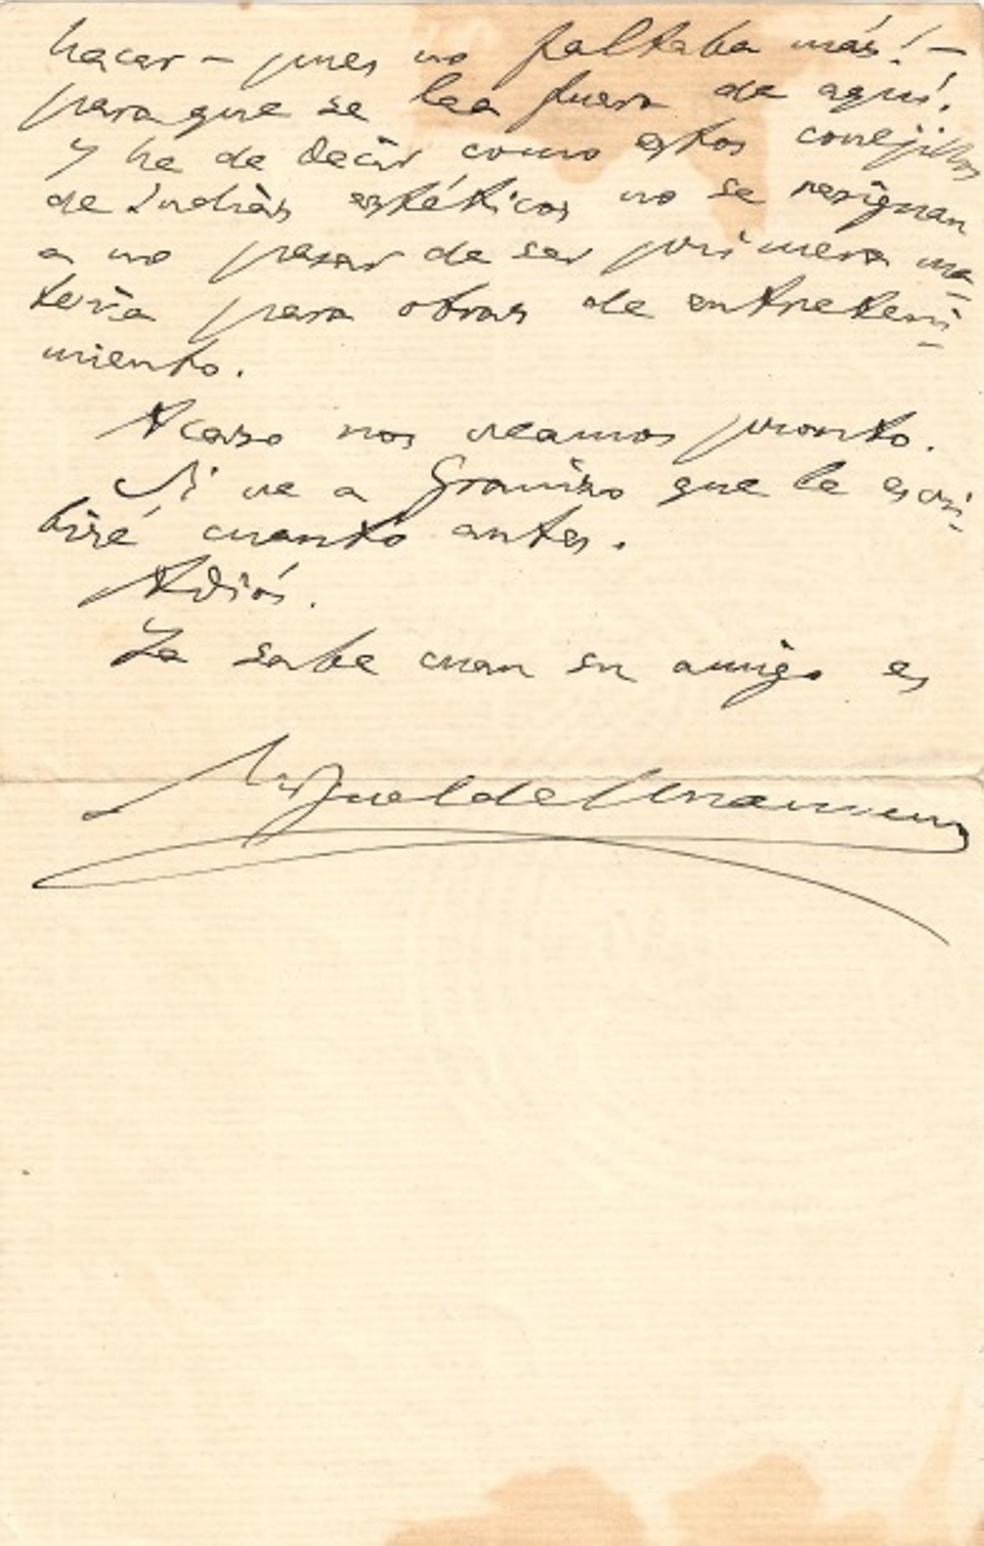 hacer – pues no faltaba más! –
para que se lea fuera de aquí.
Y he de decir como estos conejillos
de Indias estéticos no se resignan
a no pasar de ser primera ma-
teria para obras de entreteni-
miento.
Acaso nos veamos pronto.
Si ve a Granizo que le escri-
biré cuanto antes.
Adiós.
Ya sabe cuan su amigo es
Miguel de Unamuno